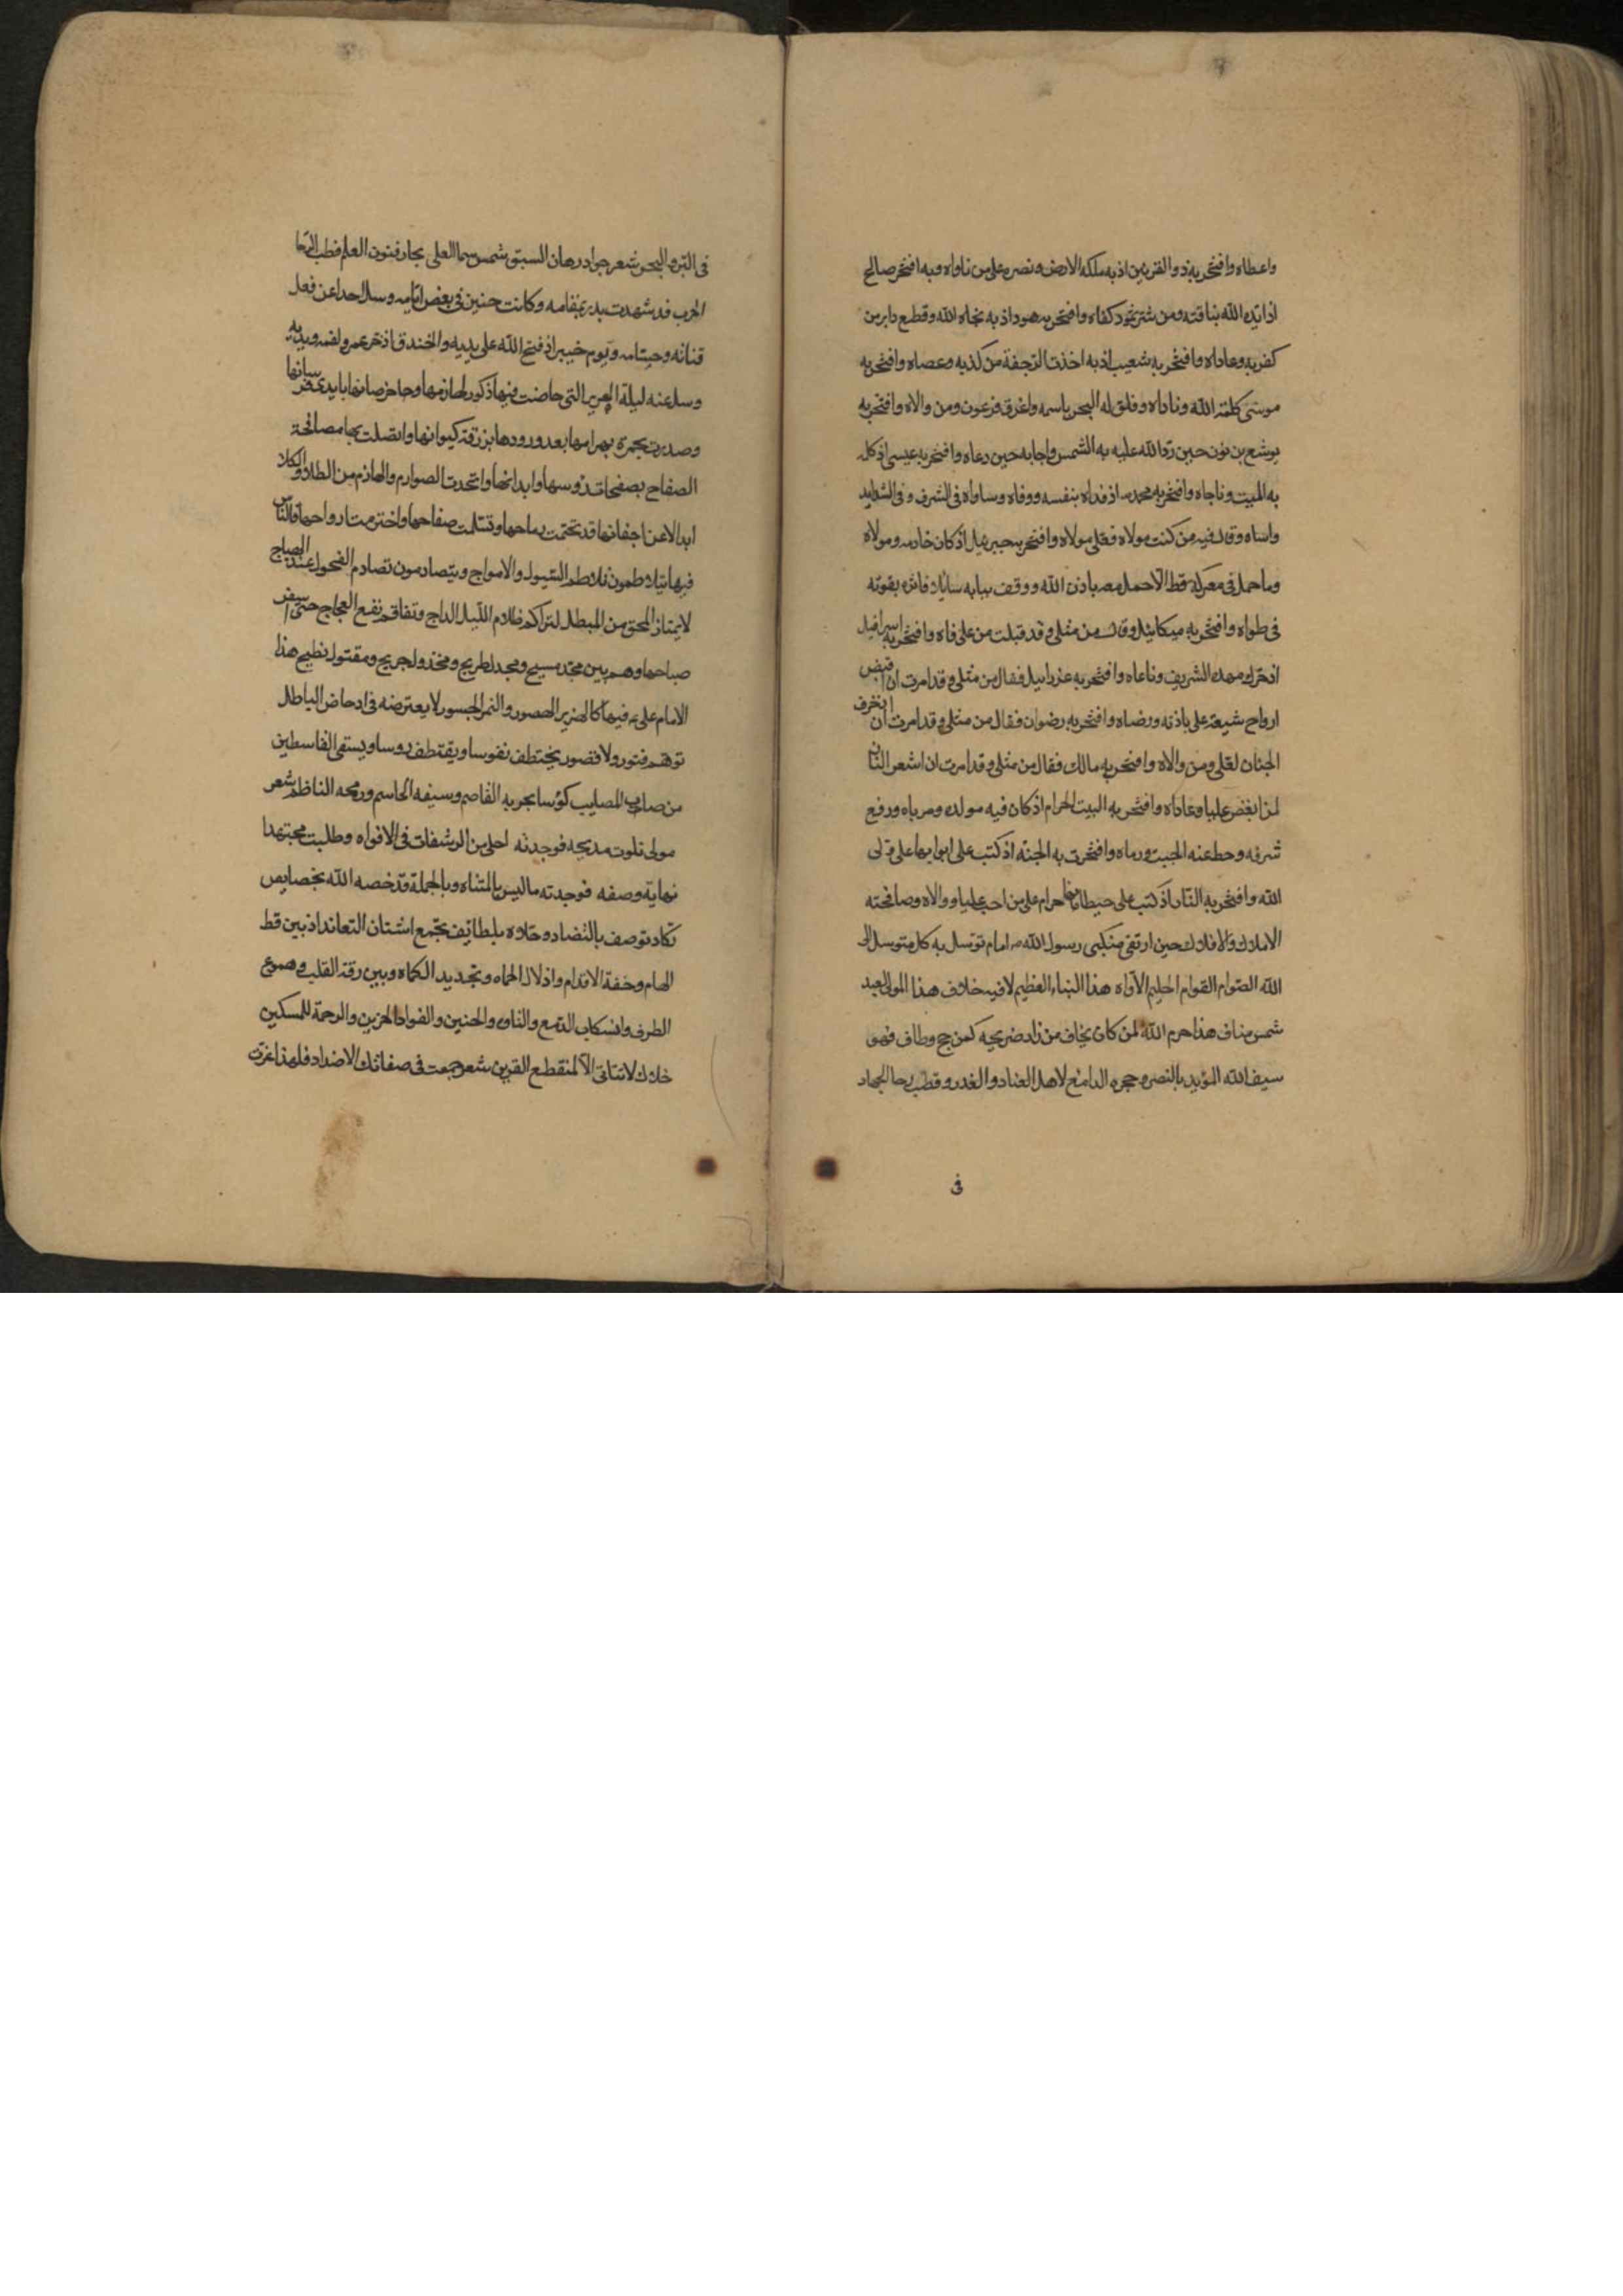 واعطاه وافتخر به ذو القرنين اذ به ملكه الارض ونصره على من ناواه وبه افتخر صالح
اذ ايده الله بناقته ومن شر ثمود كفاه وافتخر به هود اذ به نجاه الله وقطع دابر من
كفر به وعاداه وافتخر به شعيب اذ به اخذت الرجفة من كذبه وعصاه وافتخر به
موسى كلمة الله وناداه وفلق له البحر باسمه واغرق فرعون ومن والاه وافتخر به
يوشع بن نون حين رد الله عليه به الشمس واجابه حين دعاه وافتخر به عيسى اذ كلم
به الميت وناجاه وافتخر به محمد اذ فداه بنفسه ووفاه وساواه فى الشرف وفى الشدايد
واساه وقال فيه من كنت مولاه فعلى مولاه وافتخر به جبرئيل اذ كان خادمه ومولاه
وما حمل فى معركة قط الا حمل معه باذن الله ووقف ببابه سايلا فاثره بقوته
فى طواه وافتخر به ميكائيل وقال من مثلى وقد قبلت من على فاه وافتخر به اسرافيل
اذ حرك مهده الشريف وناغاه وافتخر به عزراييل فقال من مثلى وقد امرت ان اقبض
ارواح شيعة على باذنه ورضاه وافتخر به رضوان فقال من مثلى وقد امرت ان ازخرف
الجنان لعلى ومن والاه وافتخر به مالك فقال من مثلى وقد امرت ان اسعر النار
لمن ابغض عليا وعاداه وافتخر به البيت الحرام اذ كان فيه مولده ومرباه ورفع
شرفه وحط عنه الجبت ورماه وافتخرت به الجنة اذ كتب على ابوابها على ولى
الله وافتخر به النار اذ كتب على حيطانها حرام على من احب عليا ووالاه وصافحته
الاملاك والافلاك حين ارتقى منكبى رسول الله امام توسل به كل متوسل الى
الله الصوام القوام الحليم الاواه هذا النباء العظيم لا فيه خلاف هذا المولى لعبد
شمس مناف هذا حرم الله لمن كان يخاف من زار ضريحه كمن حج وطاف فهو
سيف الله المؤيد بالنصر وحجره الدامغ لاهل العناد والغدر وقطب رحا الجهاد
فى
فى البر والبحر شعر جواد رهان السبق شمس سما العلى بحار فنون العلم قطب الرحا
الحرب قد شهدت بدر بمقامه وكانت حنين فى بعض ايامه وسل احدا عن فعل
قناته وحسامه ويوم خيبر اذ فتح الله على يديه والخندق اذ خر عمرو لفمه ويديه
وسل عنه ليلة الهرير التى حاضت فيها ذكور لهازمها
وصدرت بحمرة بهرامها بعد ورودها بزرقة كيوانها واتصلت بها مصافحة
الصفاح بصفحات رؤسها وابدانها واتحدت الصوارم واللهازم من الطلا والكلا
ابدالا عن اجفانها قد تحتمت رماحها وتثلمت صفاحها واخترمت ارواحها والناس
فيها يتلاطمون تلاطم السيول والامواج ويتصادمون تصادم الفحول عند الهياج
لا يمتاز المحق من المبطل لتراكم ظلام الليل الداج وتفاقم نقع العجاج حتى اسفر
صباحها وهم بين مجد مسيح ومجدل طريح ومخذول جريح ومقتول نطيح هذا
الامام على فيها كالهزبر الهصور والنمر الجسور لا يعترضه فى ادحاض الباطل
توهم فتور ولا قصور يختطف نفوسا ويقتطف روسا ويسقى القاسطين
من صاب المصايب كؤسا بحربه القاصم وسيفه الحاسم ورمحه الناظم شعر
مولى تلوت مديحه فوجدته احلى من الرشفات فى الافواه وطلبت مجتهدا
نهاية وصفه فوجدته ما ليس بالمتناه وبالجملة قد خصه الله بخصايص
تكاد توصف بالتضاد وحلاه بلطائف تجمع اشتات التعاند اذ بين قط
الهام وخفة الاقدام واذلال الحماه وتجديد الكماه وبين رقة القلب وهموع
الطرف وانسكاب الدمع والتاوه والحنين والفواد الحزين والرحمة للمسكين
خلال لا تتاتى الا لمنقطع القرين شعر جمعت فى صفاتك الاضداد فلهذا عزت